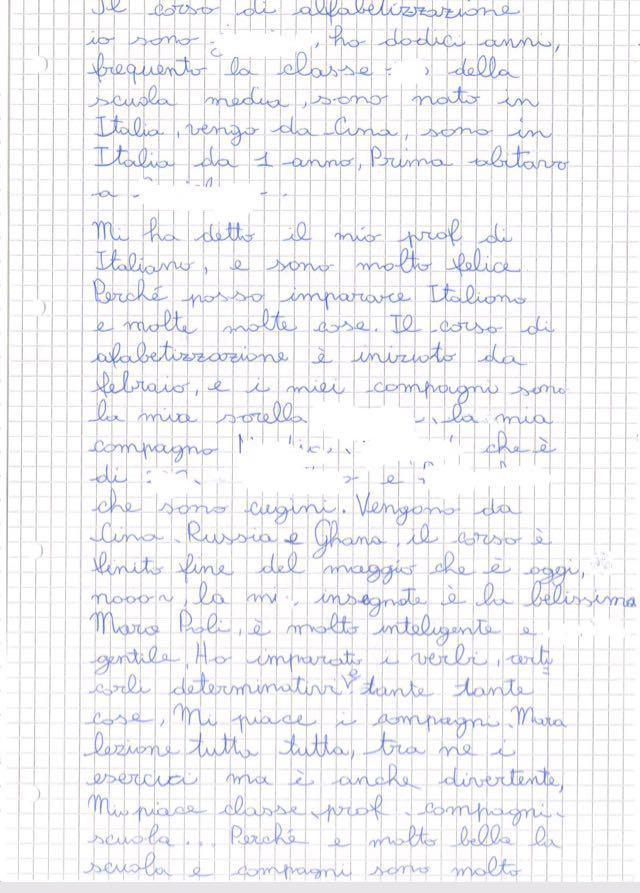 Il corso di alfabetizzazione
io sono , ho dodici anni,
frequento la classe della
scuola media, sono nato in
Italia, vengo da Cina, sono in
Italia da 1 anno, Prima abitavo
a
Mi ha detto il mio prof di
Italiano, e sono molto felice
Perché posso imparare Italiono
e molte molte cose. Il corso di
alfabetizzazione è iniziato da
febraio, e i miei compagni sono
la mia sorella , la mia
compagno che è
di e
che sono cugini. Vengono da
Cina, Russia e Ghana, il corso è
finito fine del maggio che è oggi,
nooo~, la insegnate è la belissima
Mara , è molto inteligente e
gentile, Ho imparato i verbi, arti
coli determinativi e tante tante
cose, Mi piace i compagni, Mara
lezione tutta tutta, tra ne i
esercizi ma è anche divertente,
Mi piace classe, prof, compagni,
scuola... Perché e molto bella la
scuola e compagni sono molto